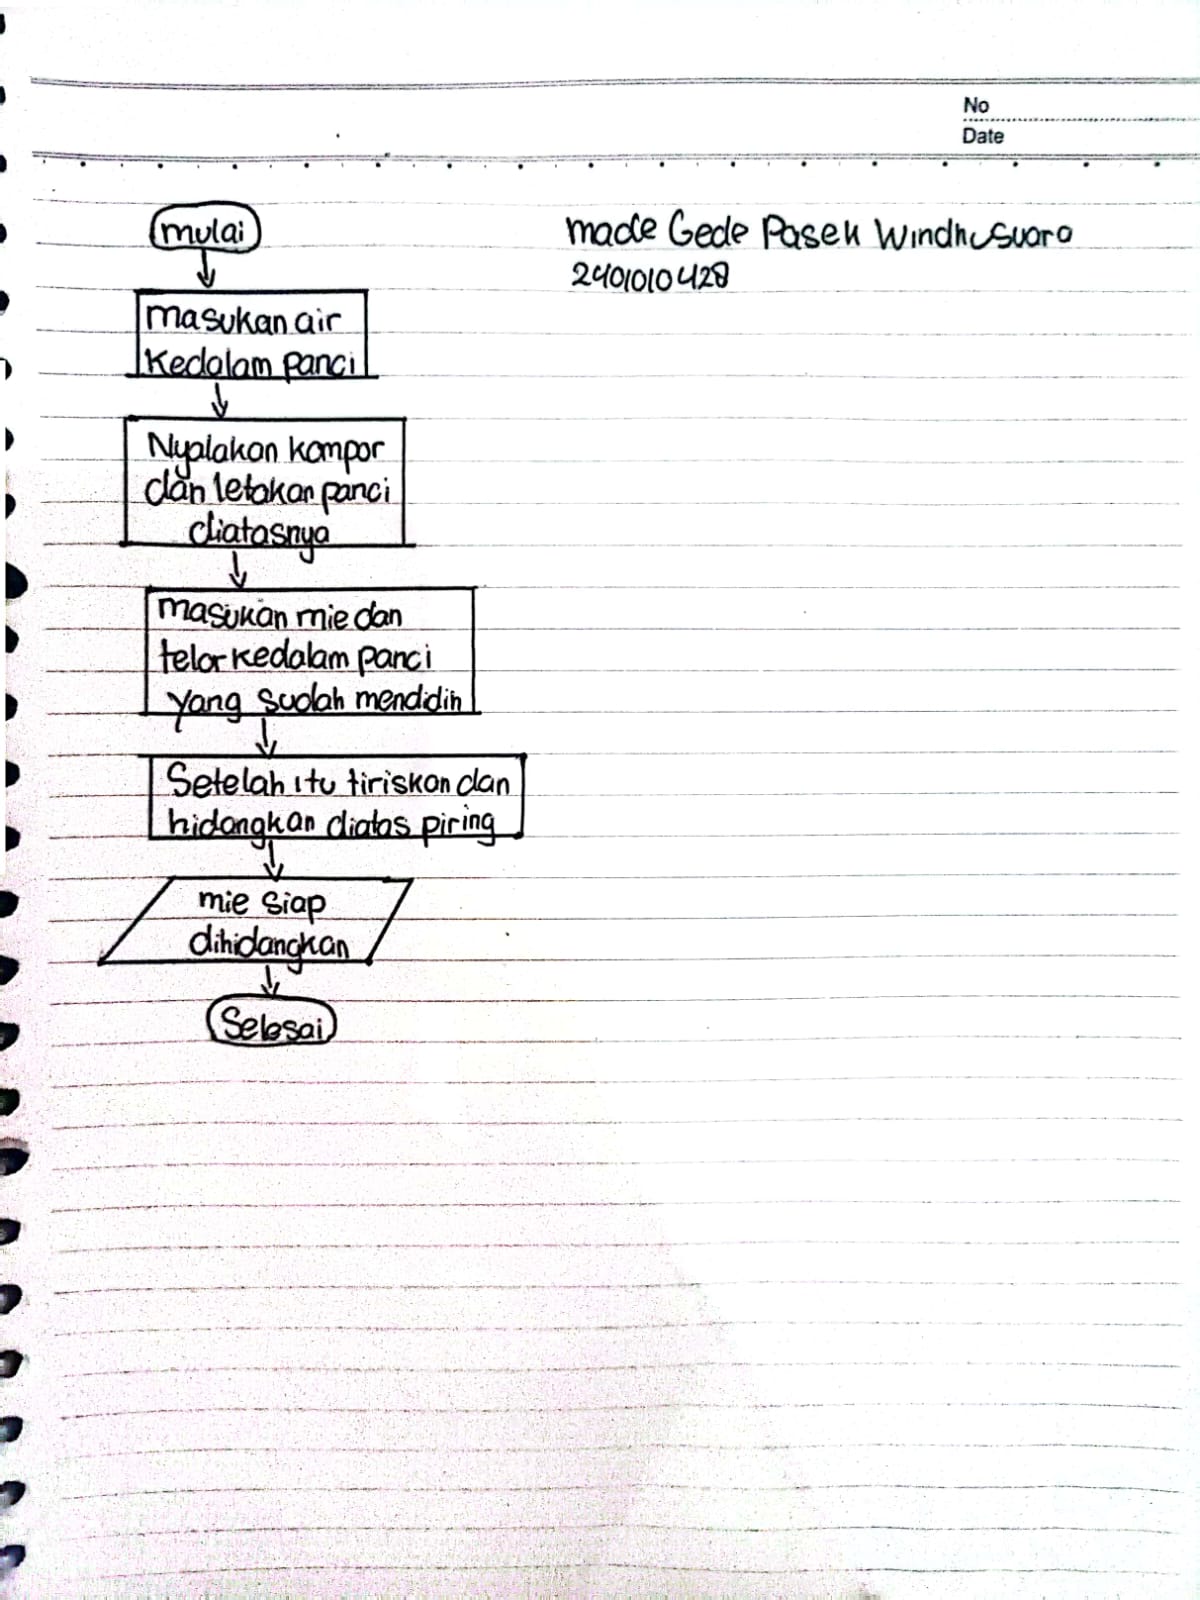 No
Date
mulai
made Gede Pasek Windhusuara
2401010428
masukan air
kedalam panci
Nyalakan kompor
dan letakan panci
diatasnya
masukan mie dan
telor kedalam panci
yang sudah mendidih
Setelah itu tiriskan dan
hidangkan diatas piring
mie siap
dihidangkan
Selesai